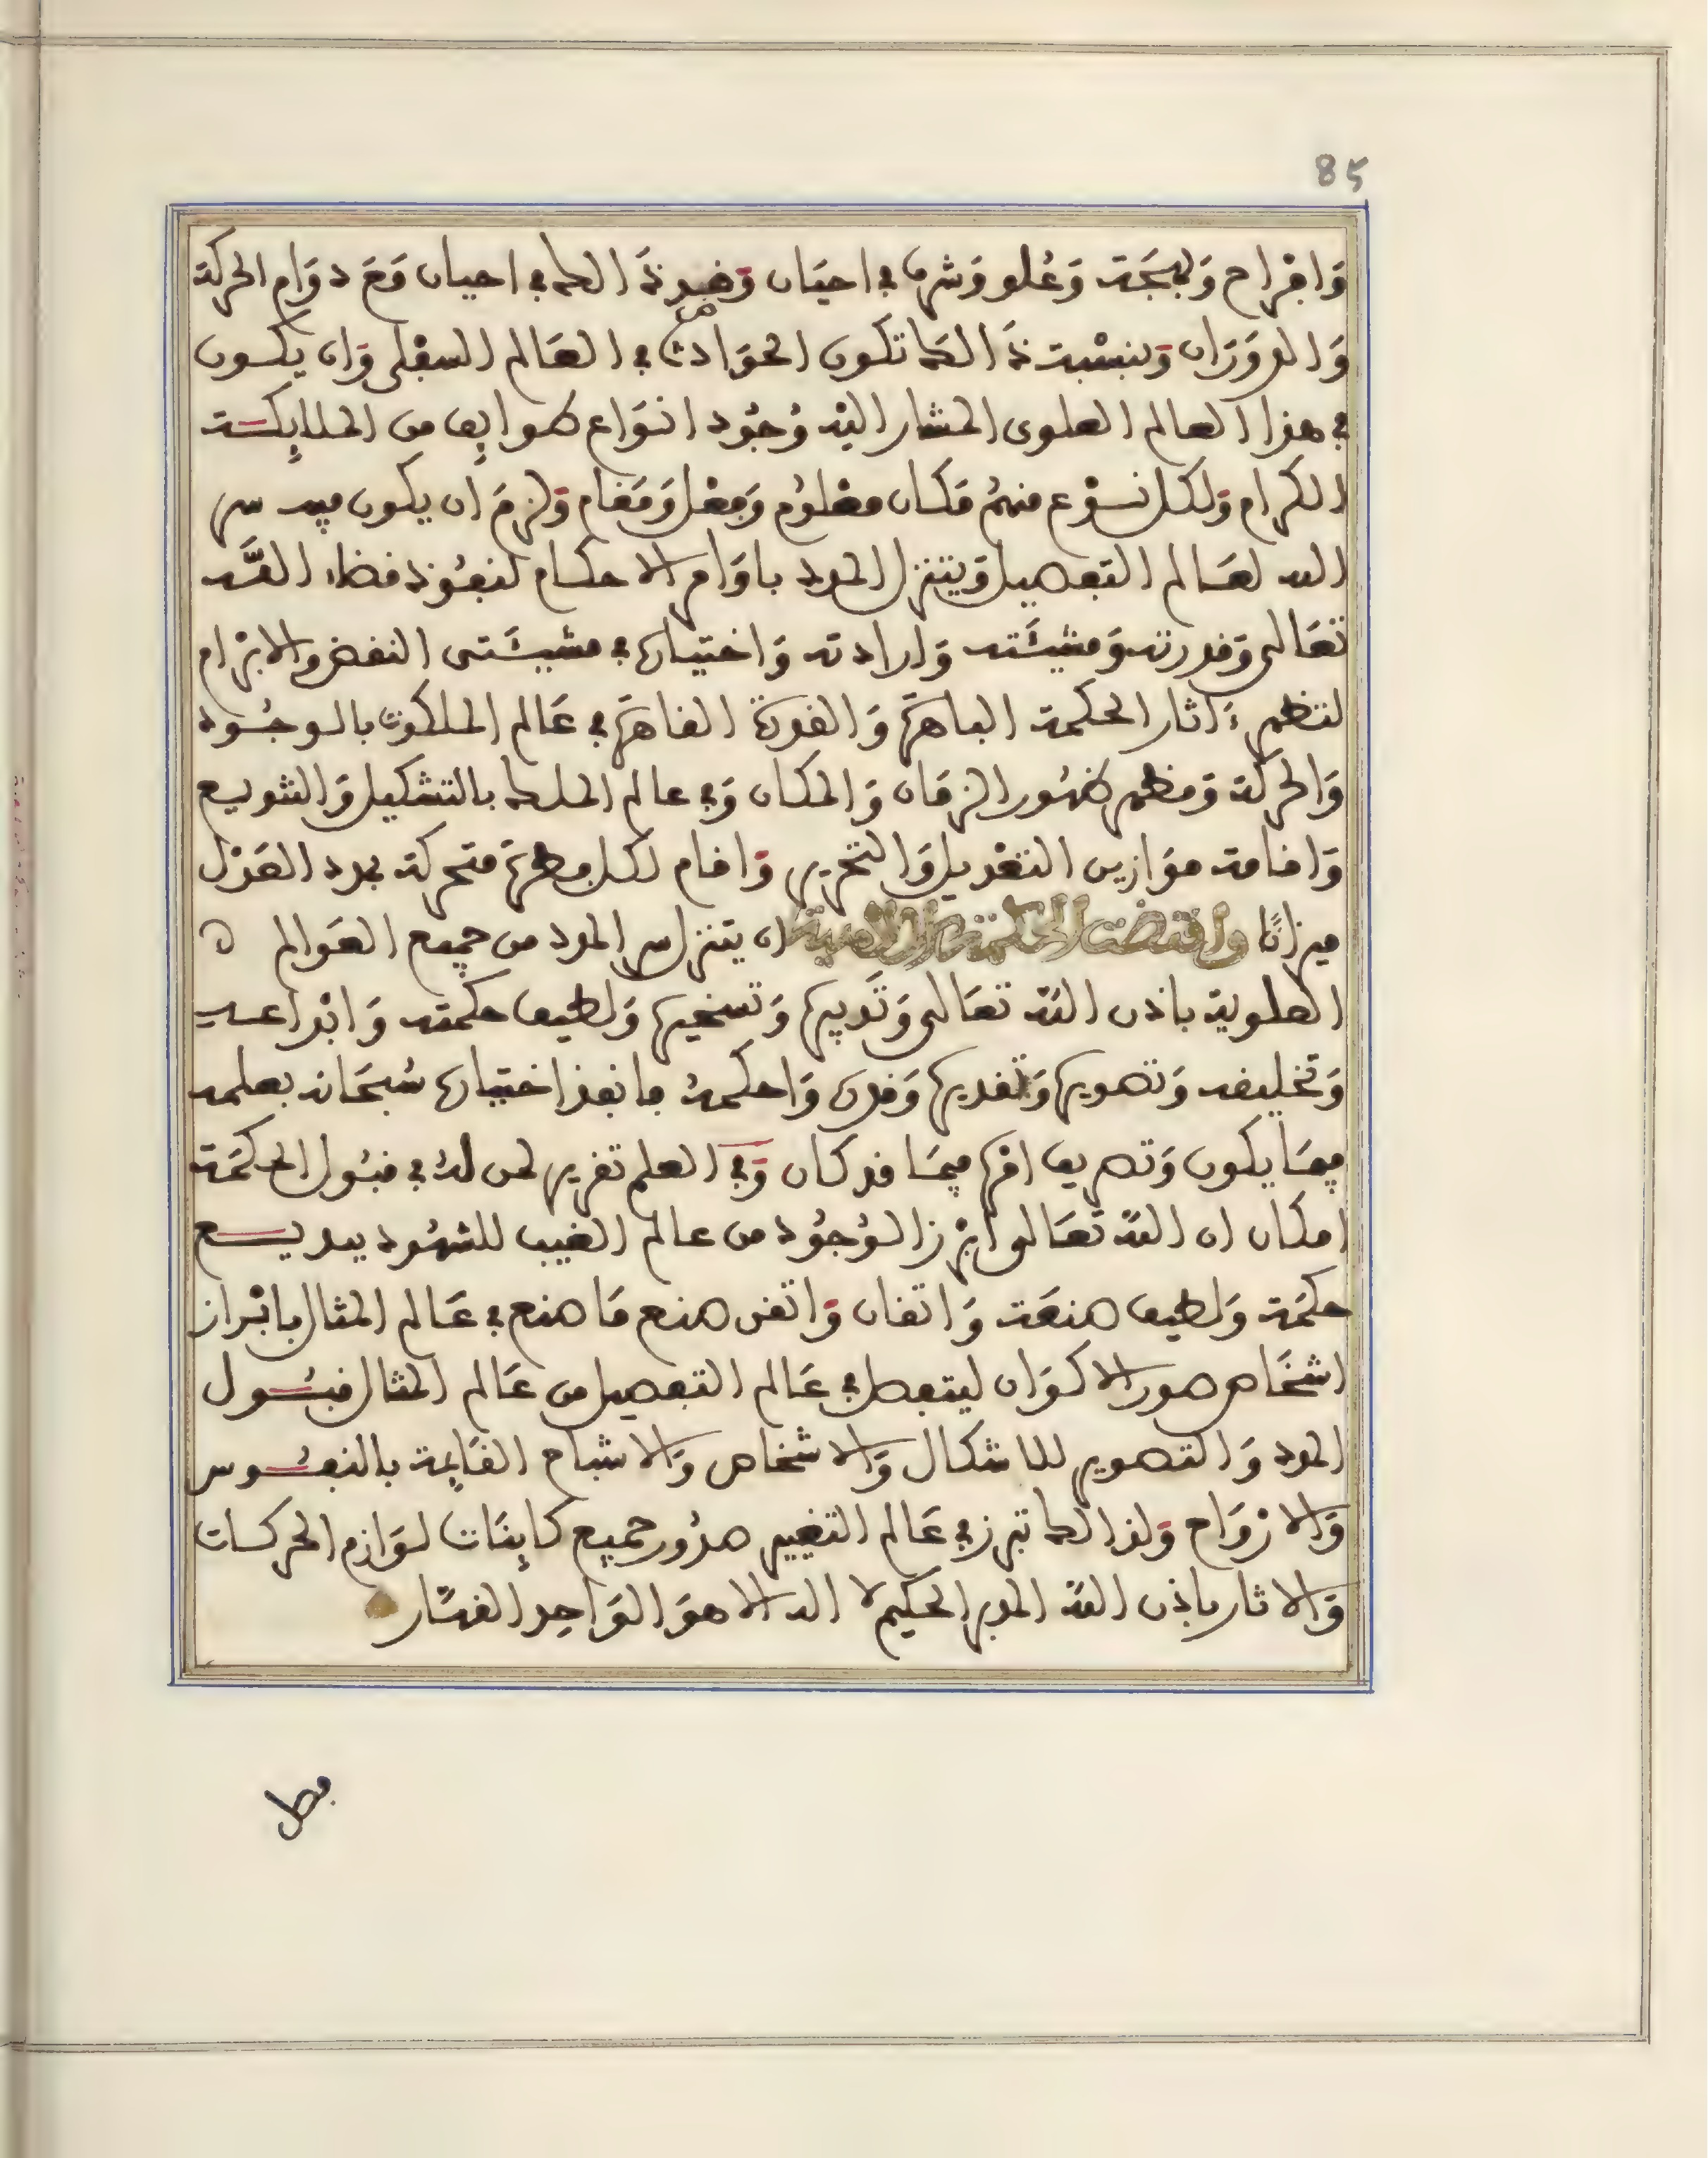 85
وَافْراح وَبهجَة وَعُلو وَشرف في احيَان وَضد ذَالك في احيان وَمَع دوَام الحركة
وَالدوَرَان وَبنسْبة ذَالك تكون الحوَادث في العَالم السفْلى وَان يكون
في هذا العالم العلوى المشار اليْه وُجُود انوَاع طوايف من الملايكة
الكرام وَلكل نوْع منهُم مَكان معْلوُم وَفعْل وَمَقام وَلزمَ ان يكون فيه سر
الله لعَالم التفصيل وَيتنزل المدد باوَامر الاحكام لنفُوذ قضاء اللَّه
تعَالى وَقدرته وَمشيئَته وَارادته وَاختياره في مشيئَتى النقض والابْرام
لتظهر ءَاثار الحكمة الباهرَة وَالقدرة القاهرَة في عَالم الملكوت بالوجُود
وَالحركة وَمظهر ظهُور الزمَان وَالمكان وَفي عالم الملك بالتشكيل وَالتنويع
وَاقامة موَازين التعْديل وَالتحرير وَاقام لكل مظهرَة متحركة بمدد العَدْل
ميزانًا واقتضت الحكمة الالاهية ان يتنزل سر المدد من جميع العَوالم ه
العلوية باذن اللَه تعَالى وَتَدبيره وَتسخيره وَلطيف حكمته وَابْداعه
وَتخليقه وَتصويره وَتقديره وَقدره وَاحكمهُ ما نفذ اختياره سُبحَانه بعلمه
فيمَا يكون وَتصريف امْره فيمَا قد كان وَفي العلم تقرير لمن لهُ في قبُول الحكمَة
امكان ان اللَه تعَالى ابْرز الوُجوُد من عالم الغيب للشهُود ببديع
حكمَة وَلطيف صنعَة وَاتقان وَاتقن صنع مَا صنع في عَالم المثال بابْراز
اشخَاص صور الاكوَان ليتفصل في عَالم التفصيل من عَالم المثال قبُول
المدد وَالتصوير للاشكال وَالاشخاص وَالاشباح القَايمة بالنفُوس
وَالارْوَاح وَلذالك تبرز في عَالم التغيير صدُور جميع كاينَات لوَازم الحركات
وَالاثار باذن اللَه المدبر الحكيم لا اله الا هوَ الوَاحِد القهَّار
فصل